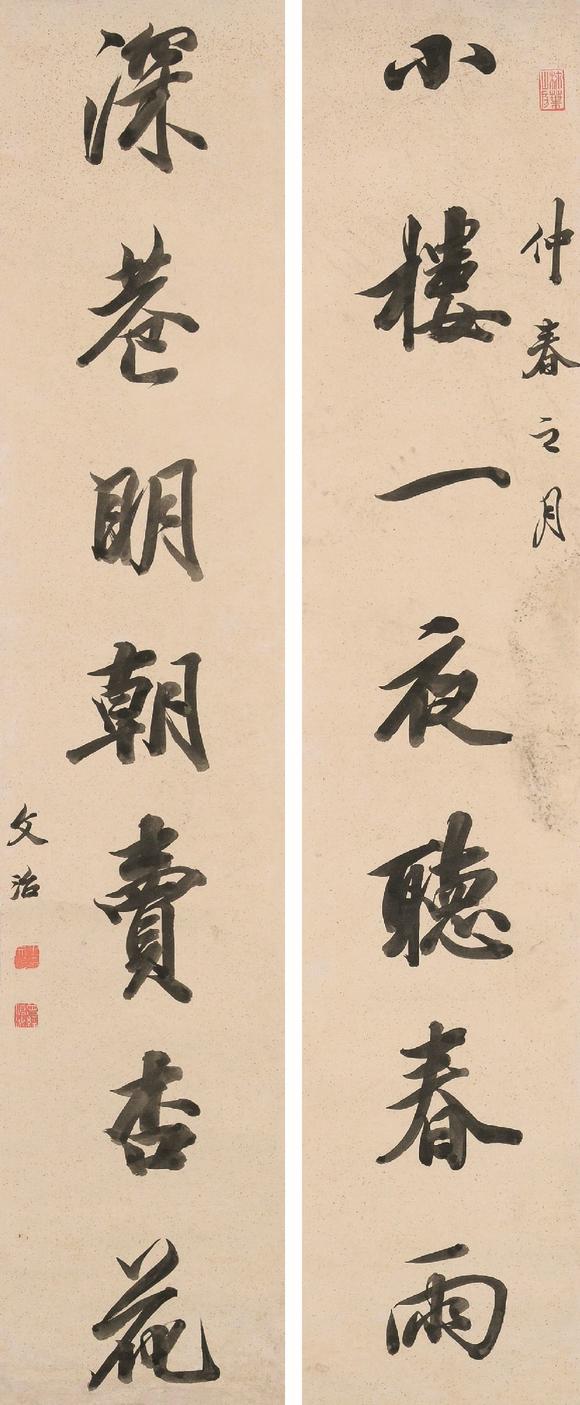 仲春之月
小樓一夜聽春雨
深巷明朝賣杏花
文治